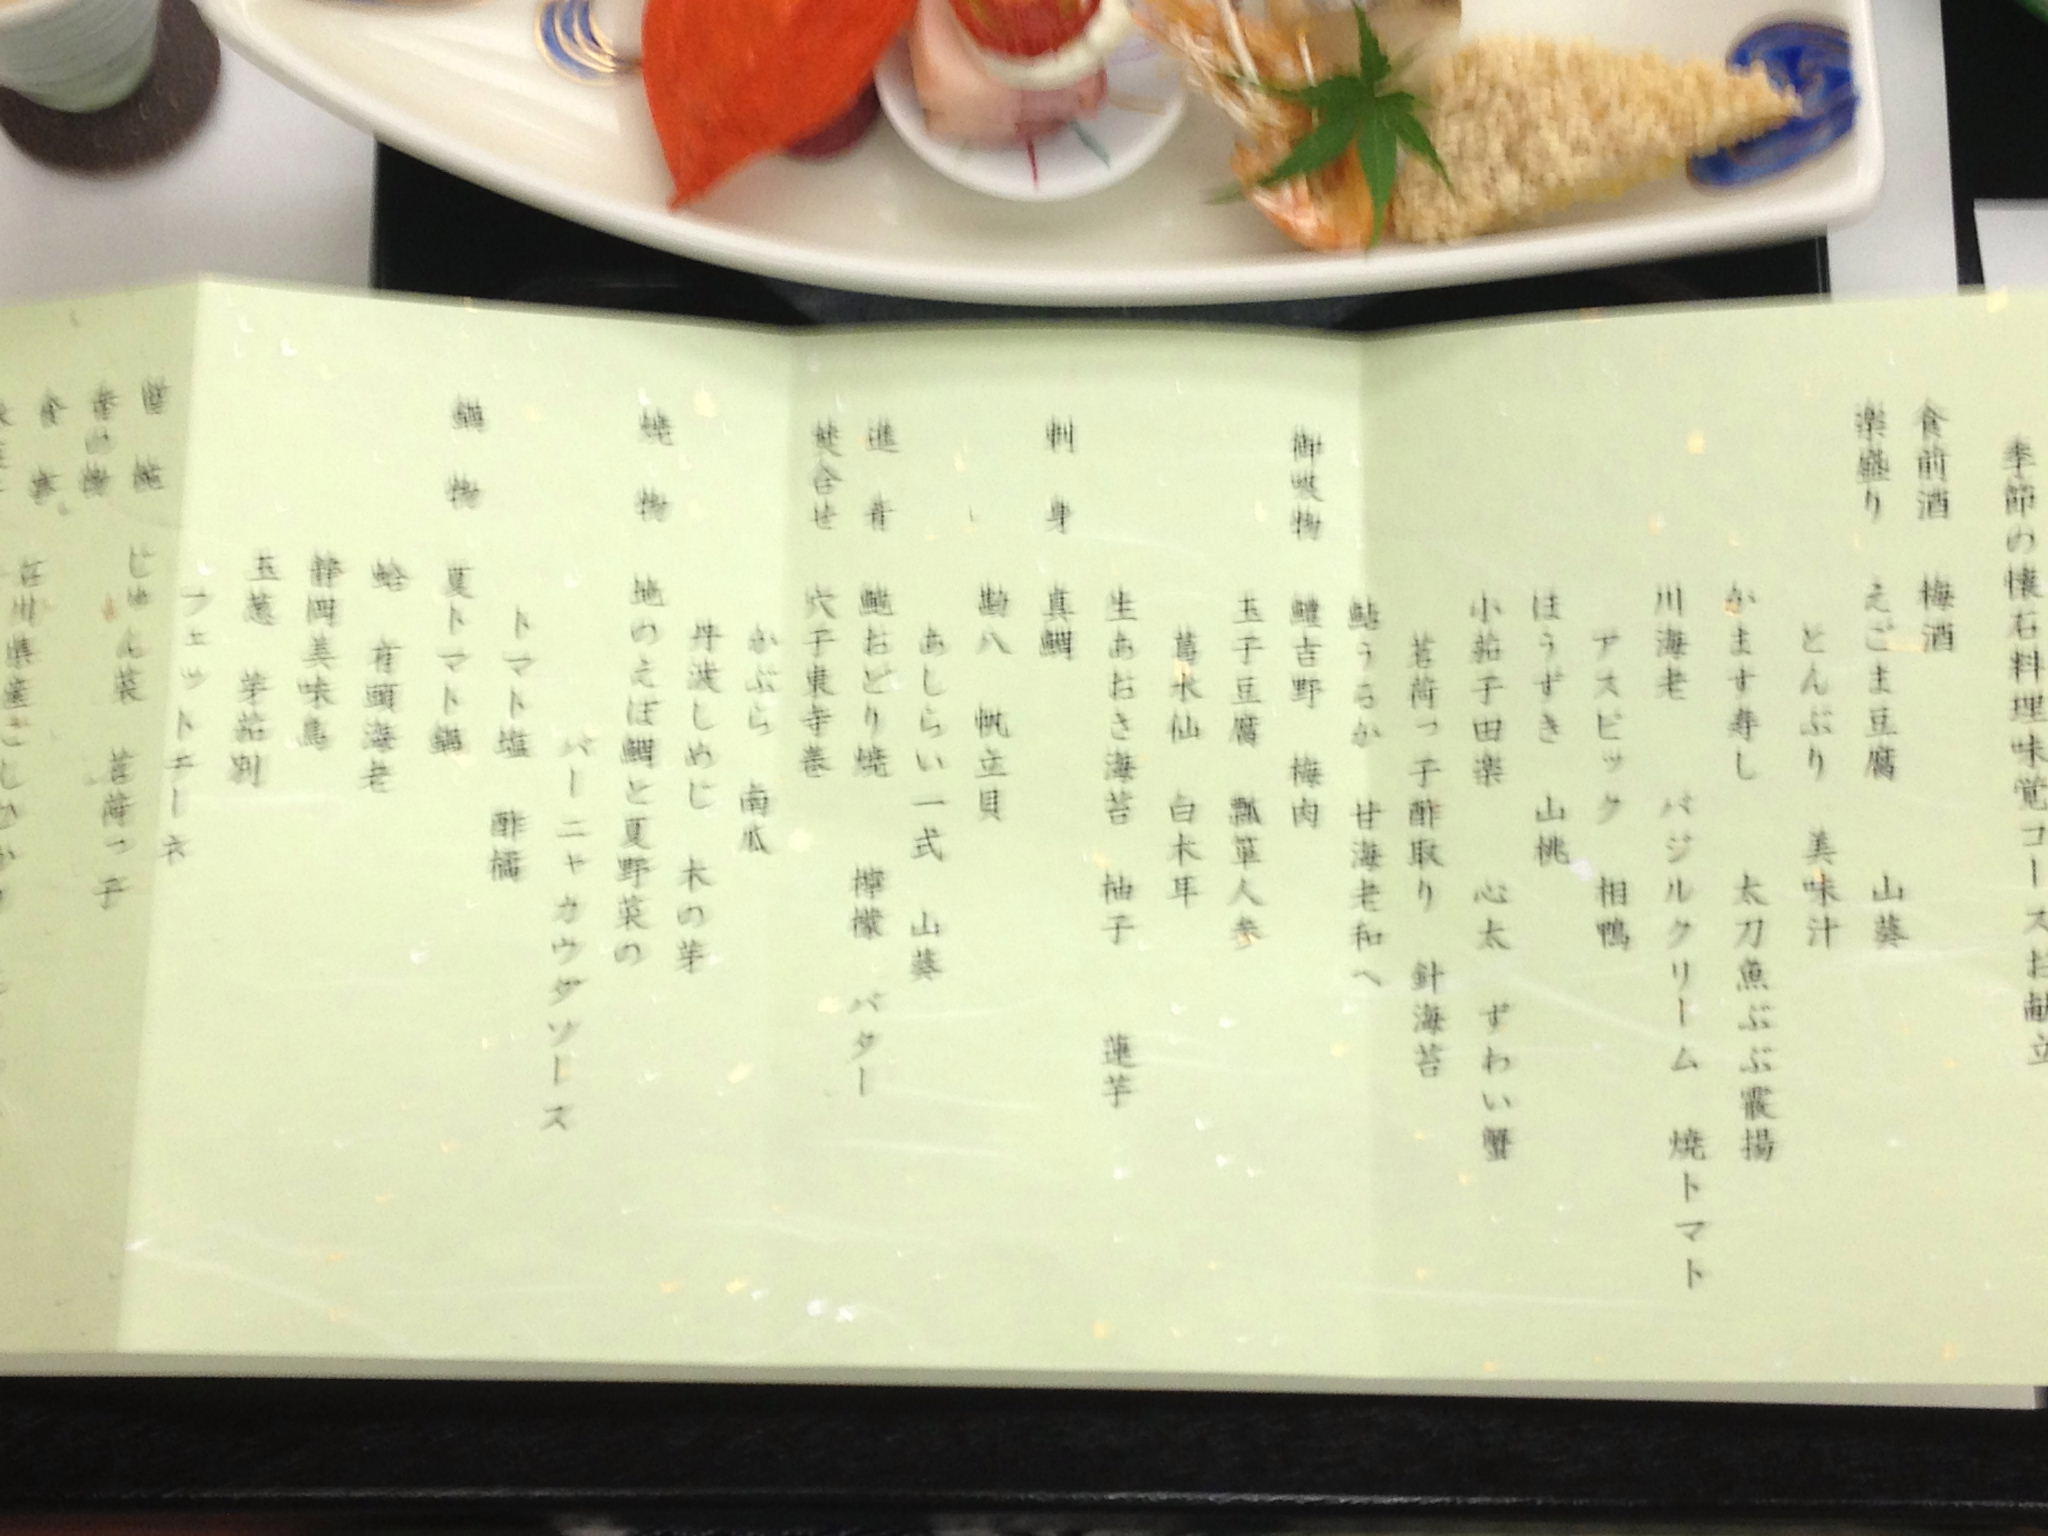 季節の懐石料理味覚コースお献立
食前酒 梅酒
楽盛り えごま豆腐 山葵
とんぶり 美味汁
かます寿し 太刀魚ぶぶ霰揚
川海老 バジルクリーム 焼トマト
アスピック 相鴨
ほうずき 山桃
小茄子田楽 心太 ずわい蟹
茗荷っ子酢取り 針海苔
鮎うるか 甘海老和へ
御吸物 鱧吉野 梅肉
玉子豆腐 瓢箪人参
葛水仙 白木耳
生あおさ海苔 柚子 蓮芋
刺身 真鯛
勘八 帆立貝
あしらい一式 山葵
進肴 鮑おどり焼 檸檬 バター
焚合せ 穴子東寺巻
かぶら 南瓜
丹波しめじ 木の芽
焼物 地のえぼ鯛と夏野菜の
バーニャカウダソース
トマト塩 酢橘
鍋物 夏トマト鍋
蛤 有頭海老
静岡美味鳥
玉葱 芽茄別
フェットチーネ
じゅん菜 茗荷っ子
香の物
食事 石川県産こしひかり